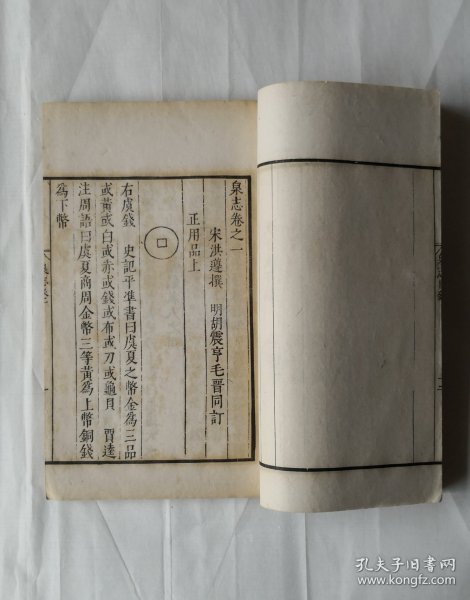 泉志卷之一
宋洪遵撰 明胡震亨毛晉同訂
正用品上
右虞錢 史記平準書曰虞夏之幣金為三品
或黃或白或赤或錢或布或刀或龜貝 賈逵
注周語曰虞夏商周金幣三等黃為上幣銅錢
為下幣
孔夫子旧书网
www.kongfz.com